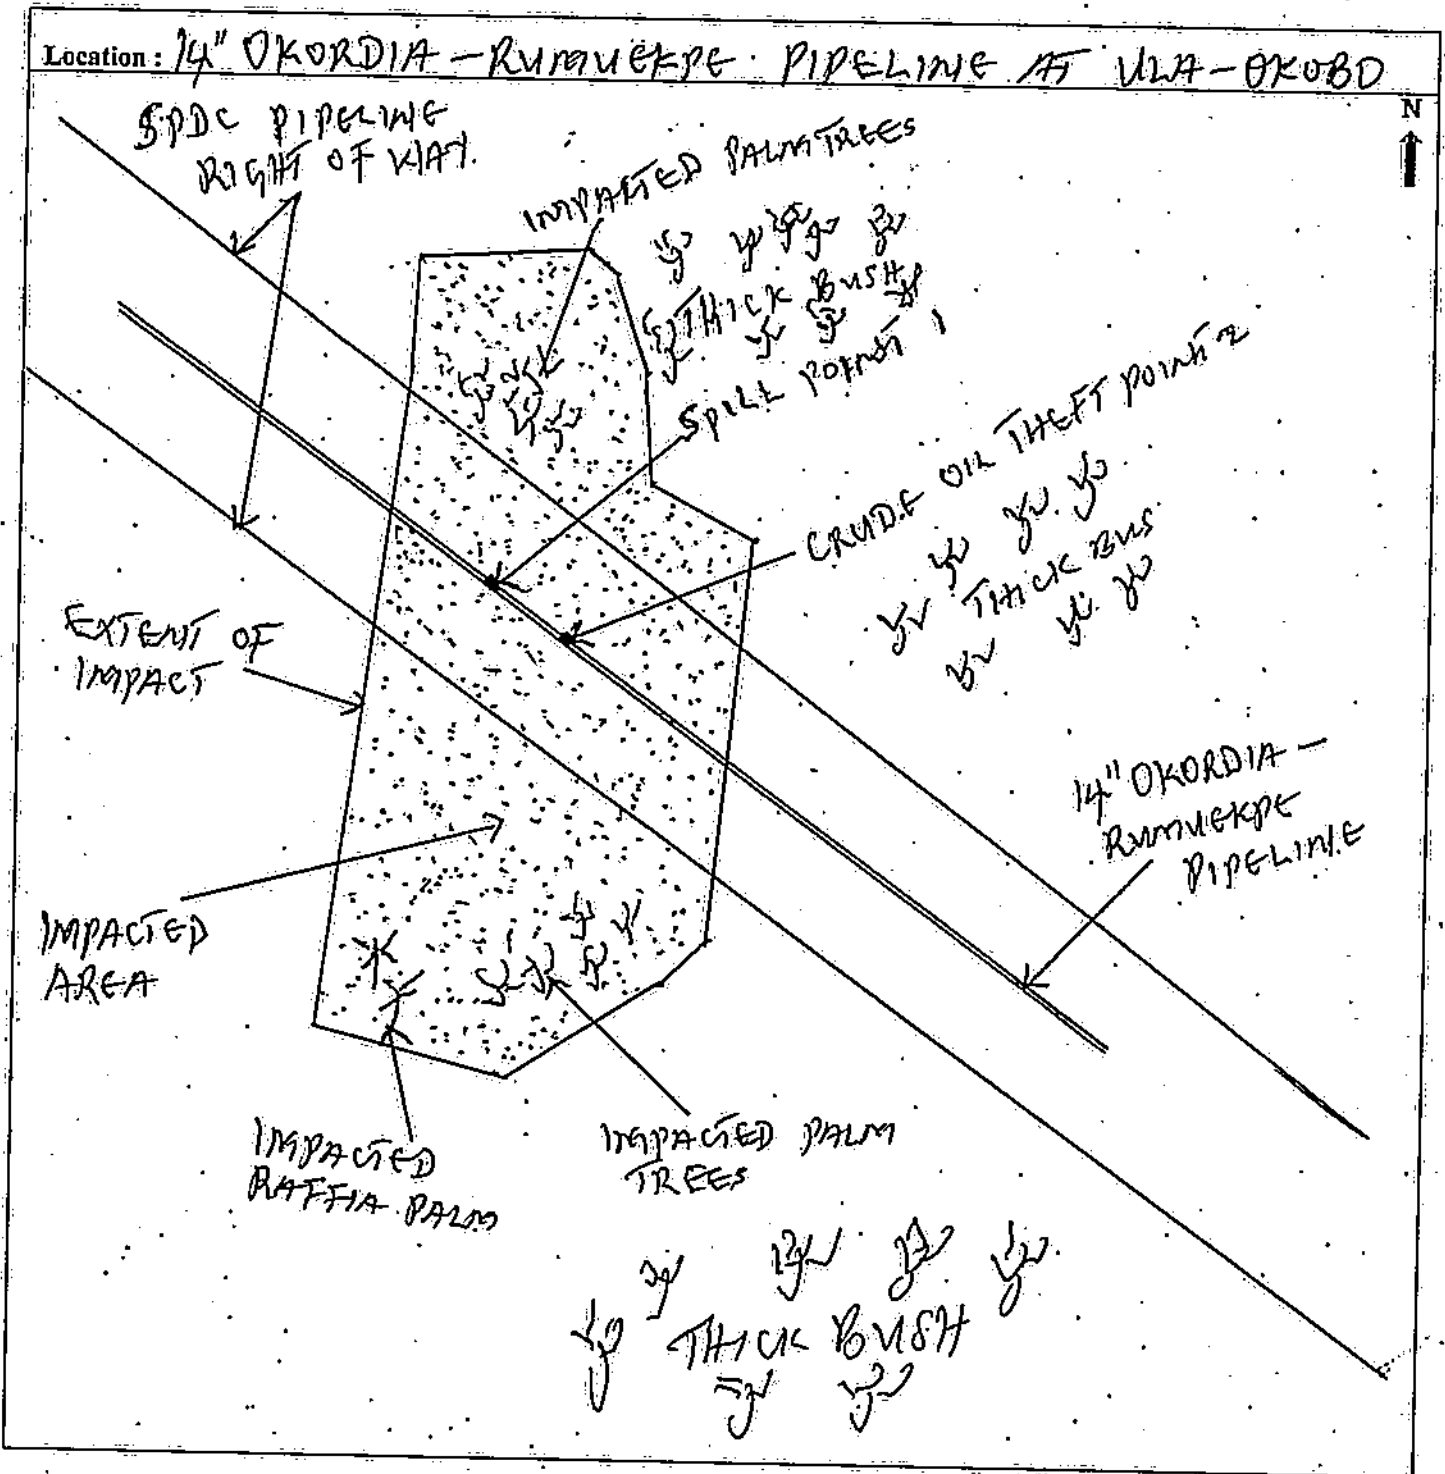 Location : 14" OKORDIA - RUMUEKPE PIPELINE AT ULA-OKOBO
N
SPDC PIPELINE
RIGHT OF WAY.
IMPACTED PALM TREES
THICK BUSH
SPILL POINT 1
CRUDE OIL THEFT POINT 2
THICK BUS
EXTENT OF
IMPACT
14" OKORDIA -
RUMUEKPE
PIPELINE
IMPACTED
AREA
IMPACTED
RAFFIA PALM
IMPACTED PALM
TREES
THICK BUSH